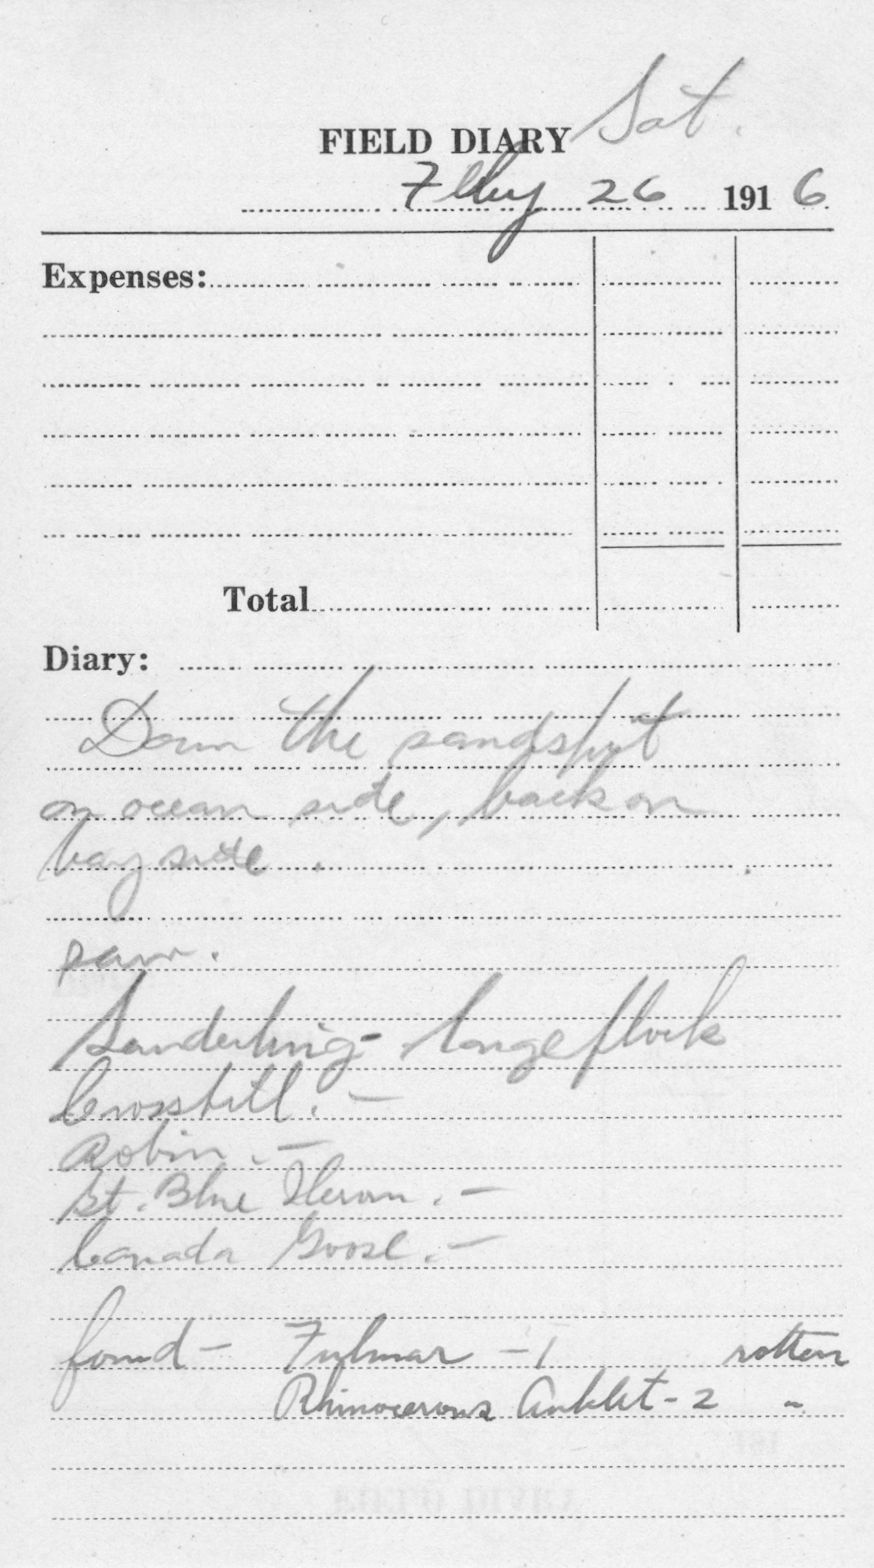 Sat.
FIELD DIARY
Feby 26 1916
Expenses:
Total
Diary:
Down the sandspit
on ocean side, back on
bay side.
saw.
Sanderling - large flock
Crossbill. -
Robin. -
Gt. Blue Heron. -
Canada Goose. -
found - Fulmar - 1 rotten
Rhinocerous Auklet - 2 "